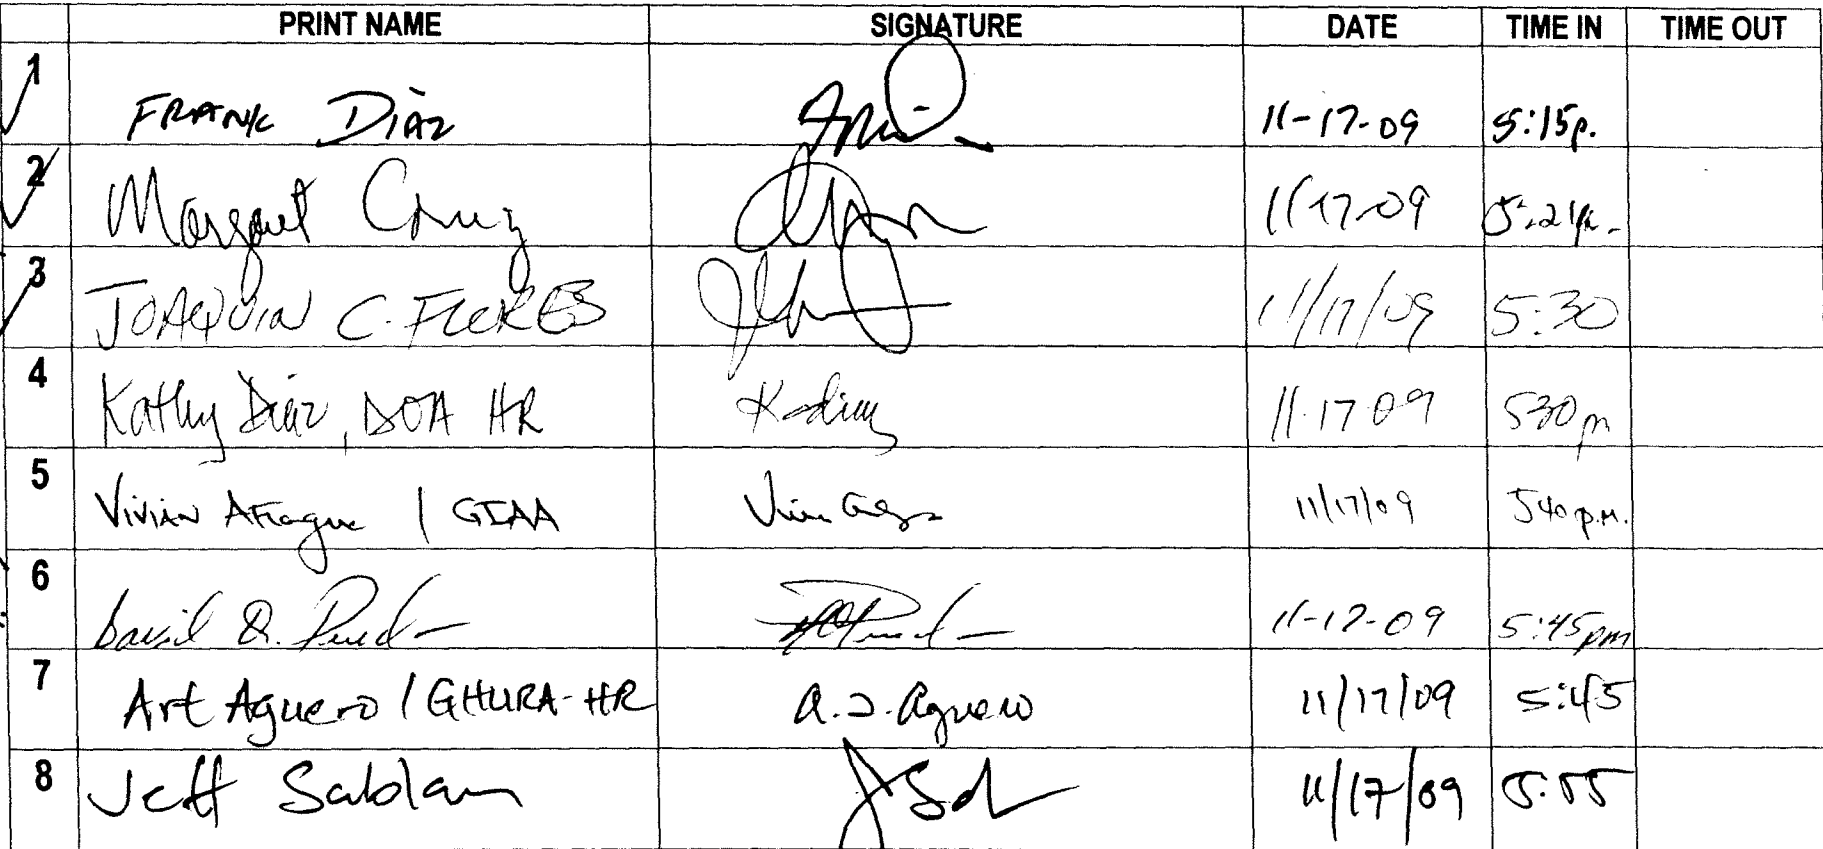 PRINT NAME SIGNATURE DATE TIME IN TIME OUT
1 FRANK DIAZ 11-17-09 5:15p.
2 Margaret Cruz 11-17-09 5:21p.
3 JOAQUIN C. FLORES 11/17/09 5:30
4 Kathy Diaz, DOA HR 11-17-09 530pm
5 Vivian / GIAA 11/17/09 540 p.m.
6 David R. 11-17-09 5:45pm
7 Art Aguero / GHURA-HR a.J. Aguero 11/17/09 5:45
8 Jeff Sablan 11/17/09 5:55